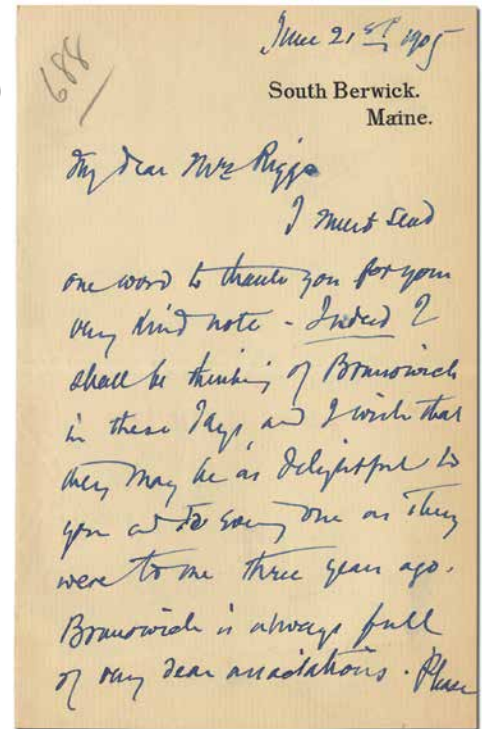 688
June 21st 1905
South Berwick.
Maine.
My dear Mrs Riggs
I must send
one word to thank you for your
very kind note - Indeed I
shall be thinking of Brunswick
in these days, and I wish that
they may be as delightful to
you and to every one as they
were to me three years ago.
Brunswick is always full
of very dear associations. Please